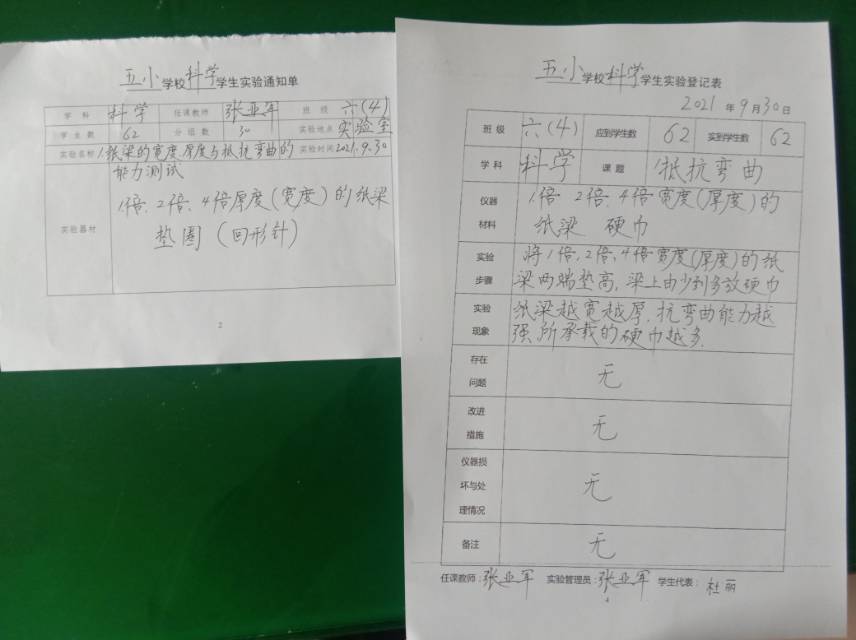 五小学校科学学生实验通知单
学科 科学 任课教师 张亚军 班级 六(4)
学生数 62 分组数 30 实验地点 实验室
实验名称 1.纸梁的宽度厚度与抵抗弯曲的 实验时间 2021.9.30
能力测试
实验器材
1倍、2倍、4倍厚度(宽度)的纸梁
垫圈(回形针)
2
五小学校科学学生实验登记表
2021年9月30日
班级 六(4) 应到学生数 62 实到学生数 62
学科 科学 课题 1抵抗弯曲
仪器 1倍、2倍、4倍宽度(厚度)的
材料 纸梁 硬巾
实验 将1倍、2倍、4倍宽度(厚度)的纸
步骤 梁两端垫高,梁上由少到多放硬巾
实验 纸梁越宽越厚,抗弯曲能力越
现象 强,所承载的硬巾越多.
存在
问题 无
改进
措施 无
仪器损
坏与处 无
理情况
备注 无
任课教师:张亚军 实验管理员:张亚军 学生代表:杜丽